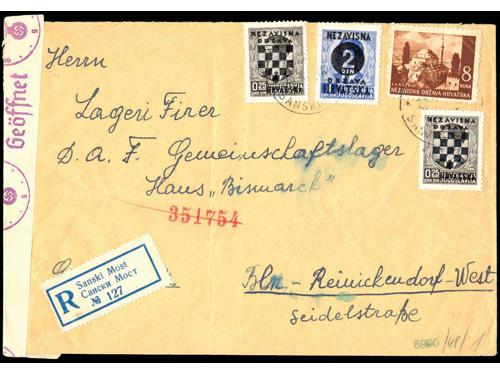 Geöffnet
Herrn
NEZAVISNA
DRŽAVA
0.25
JUGOSLAVIJA
NEZAVISNA
2
DIN
DRŽAVA
HRVATSKA
JUGOSLAVIJA
8
KUNA
NEZAVISNA DRŽAVA HRVATSKA
SANSKI
Lageri Firer
D. A. F. Gemeinschaftslager
Haus „Bismarck"
NEZAVISNA
DRŽAVA
0.25
JUGOSLAVIJA
351754
R
Sanski Most
Сански Мост
№ 127
Bln. - Reinickendorf-West
Seidelstraße
6990/48/1